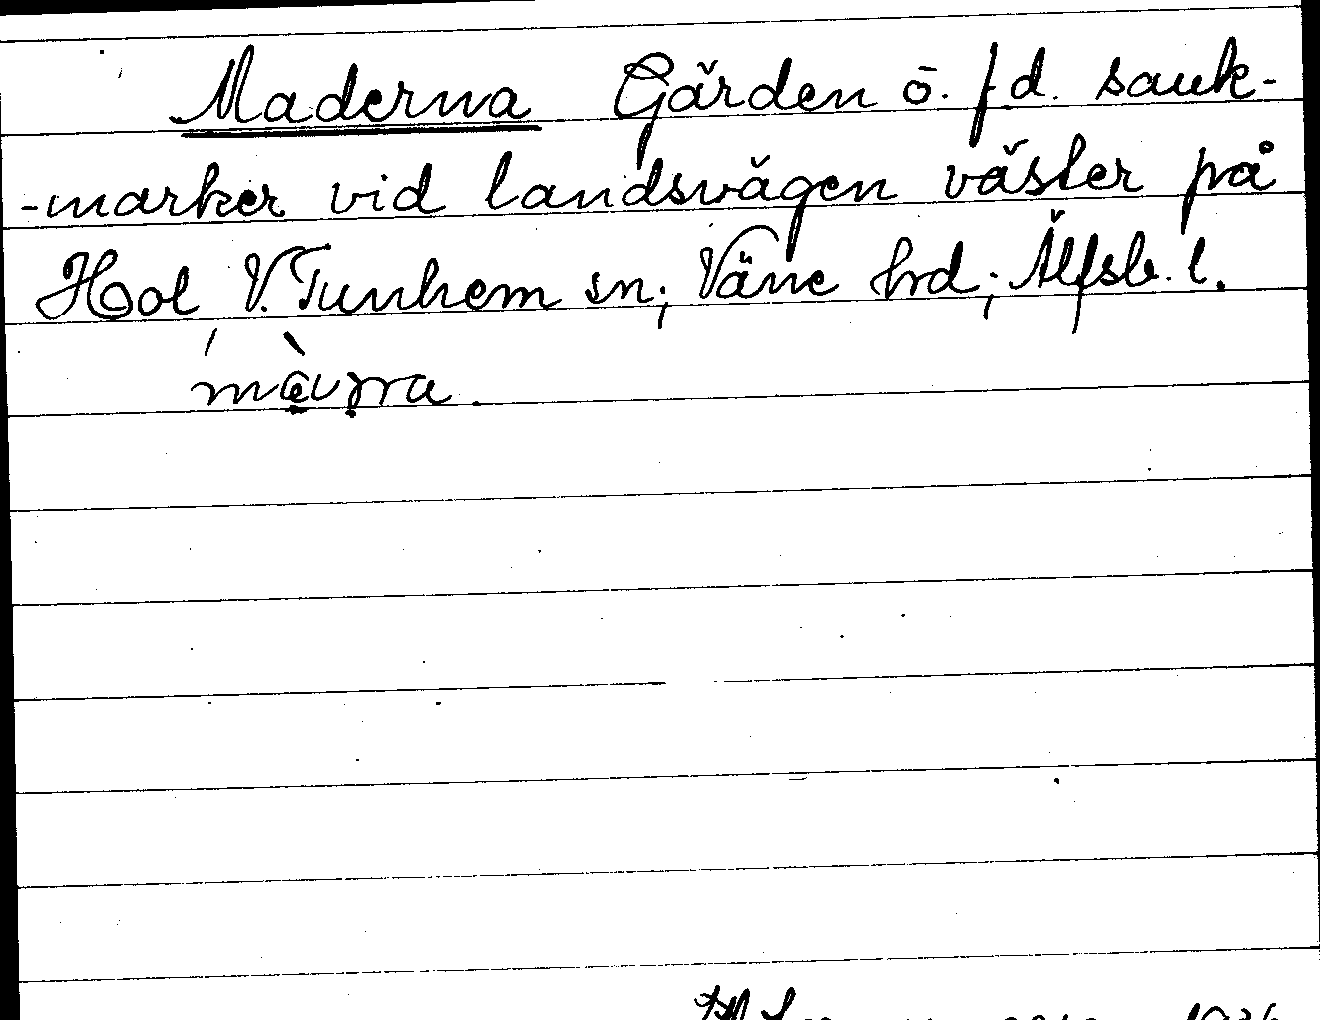 Maderna Gärden ö. f.d. sank-
-marker vid landsvägen väster på
Hol V. Tunhem sn; Väne hrd; Älfsb. l.